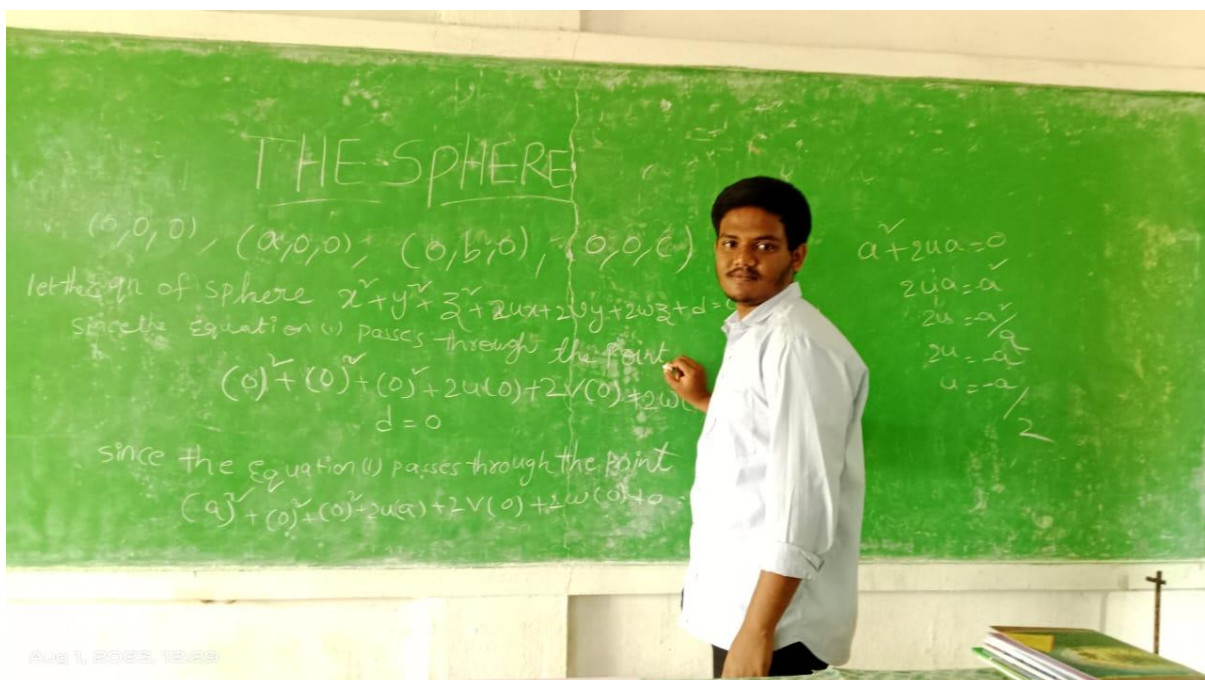 THE SPHERE
(0,0,0), (a,0,0), (0,b,0), (0,0,c)
let the eqn of sphere x²+y²+z²+2ux+2vy+2wz+d=0
since the Equation (1) passes through the point
(0)²+(0)²+(0)²+2u(0)+2V(0)+2w(
d=0
since the Equation (1) passes through the point
(a)²+(0)²+(0)²+2u(a)+2V(0)+2w(0)+0
a²+2ua=0
2ua=a²
2u=-a²/a
2u=-a
u=-a/2
Aug 1, 2023, 12:29